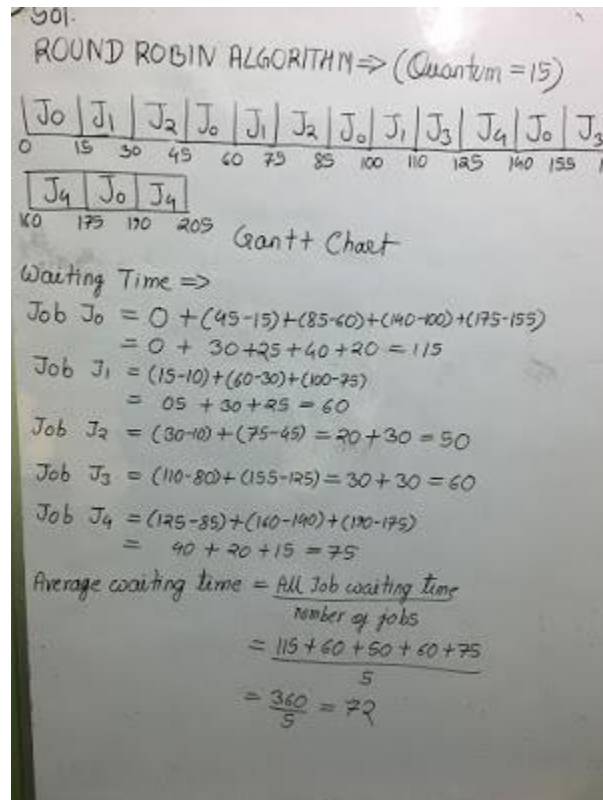 Sol.
ROUND ROBIN ALGORITHM => (Quantum = 15)
J0 J1 J2 J0 J1 J2 J0 J1 J3 J4 J0 J3
0 15 30 45 60 75 85 100 110 125 140 155
J4 J0 J4
160 175 190 205 Gantt Chart
Waiting Time =>
Job J0 = 0 + (45-15)+(85-60)+(140-100)+(175-155)
= 0 + 30+25+40+20 = 115
Job J1 = (15-10)+(60-30)+(100-75)
= 05 + 30 + 25 = 60
Job J2 = (30-10)+(75-45) = 20+30 = 50
Job J3 = (110-80)+(155-125) = 30+30 = 60
Job J4 = (125-85)+(160-140)+(190-175)
= 40 + 20 + 15 = 75
Average waiting time = All Job waiting time
number of jobs
= 115 + 60 + 50 + 60 + 75
5
= 360 = 72
5